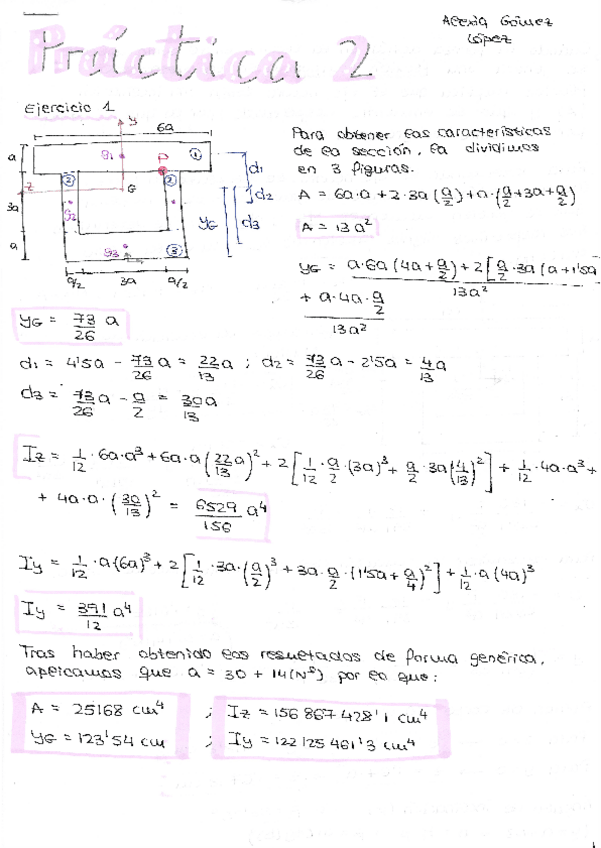 Alexia Gómez
López
Práctica 2
Ejercicio 1
y
6a
a
3a
a
z
G
G1
G2
G3
P
1
2
2
3
d1
d2
d3
yG
a/2
3a
a/2
Para obtener las características
de la sección, la dividimos
en 3 figuras.
A = 6a·a + 2·3a(a/2) + a·(a/2 + 3a + a/2)
A = 13a²
yG = a·6a(4a + a/2) + 2[a/2·3a(a + 1'5a
+ a·4a·a/2
13a²
13a²
yG = 73/26 a
d1 = 4'5a - 73/26 a = 22/13 a ; d2 = 73/26 a - 2'5a = 4/13 a
d3 = 73/26 a - a/2 = 30/13 a
Iz = 1/12·6a·a³ + 6a·a(22/13 a)² + 2[1/12·a/2·(3a)³ + a/2·3a(4/13)²] + 1/12·4a·a³ +
+ 4a·a·(30/13)² = 6529/156 a⁴
Iy = 1/12·a(6a)³ + 2[1/12·3a·(a/2)³ + 3a·a/2·(1'5a + a/4)²] + 1/12·a(4a)³
Iy = 391/12 a⁴
Tras haber obtenido los resultados de forma genérica,
aplicamos que a = 30 + 14(Nº) por lo que:
A = 25168 cm² ; Iz = 156 867 428'1 cm⁴
yG = 123'54 cm ; Iy = 122 125 461'3 cm⁴